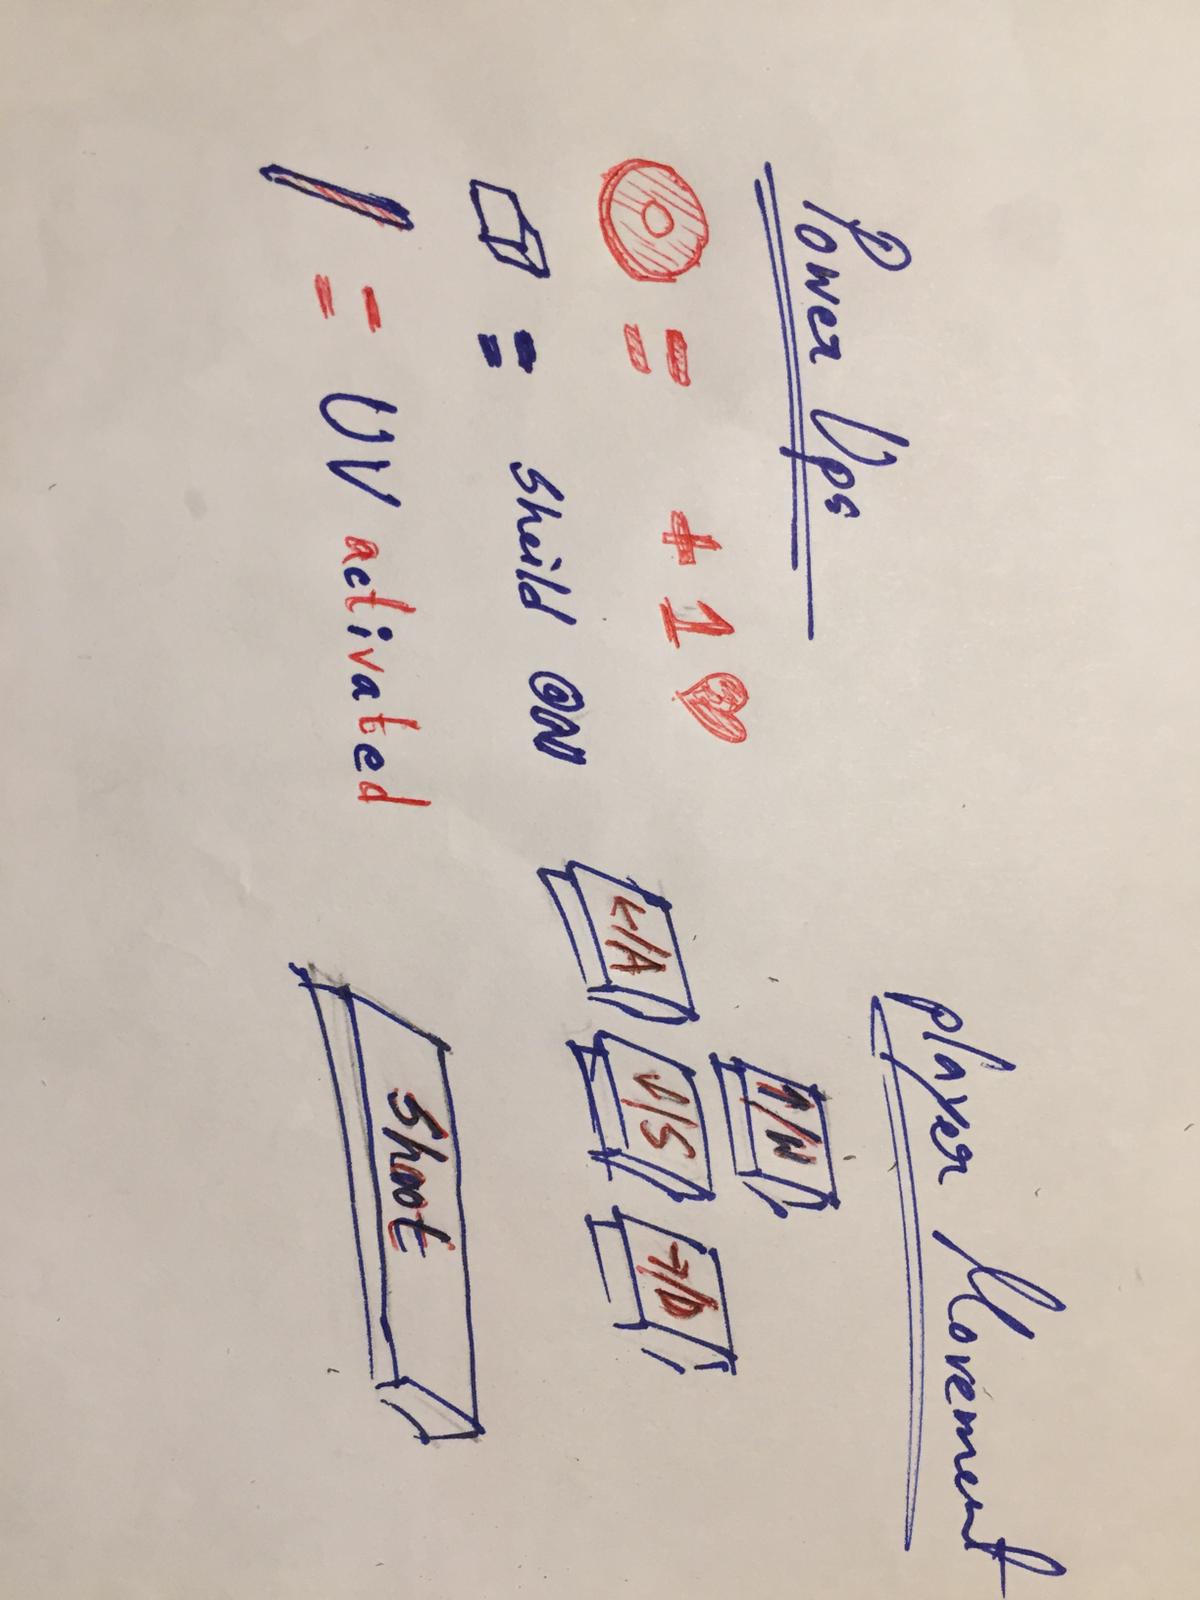 Power Ups
= +1
= Sheild ON
= UV activated
player Movement
↑/W
←/A ↓/S →/D
Shoot